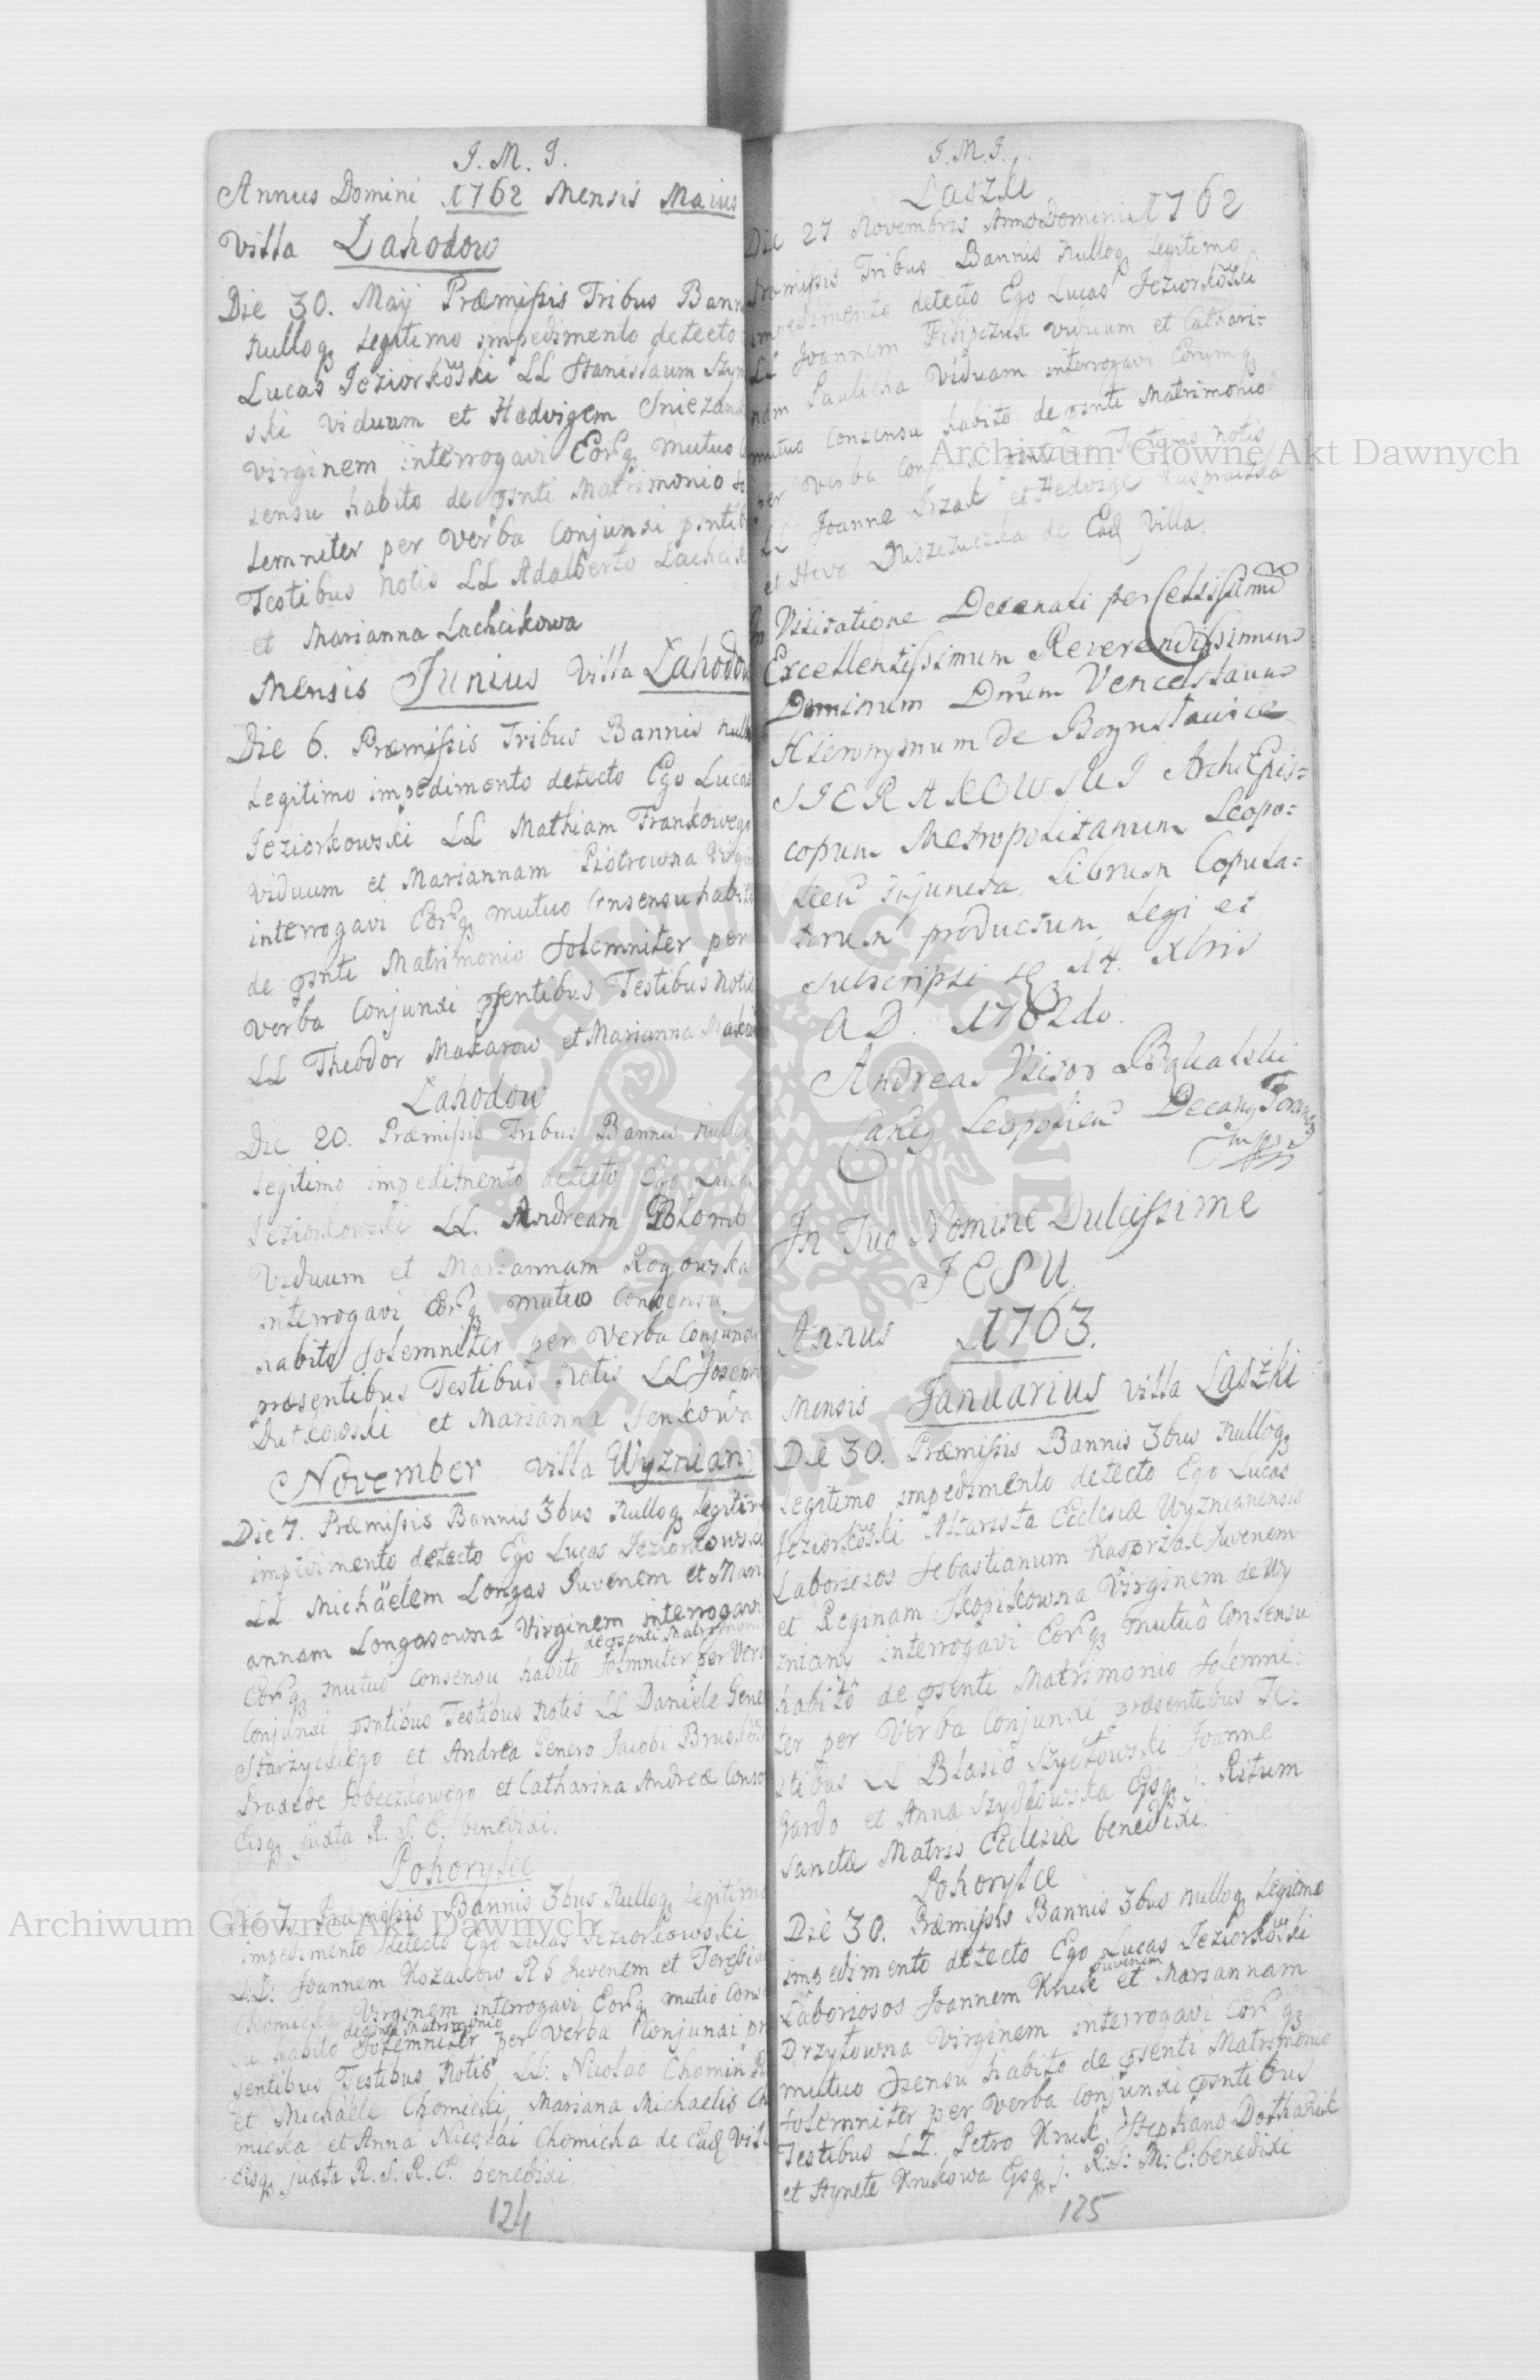 J. M. J.
Annus Domini 1762 Mensis Maius
Villa Lahodow
Die 30. Maij Præmissis Tribus Bann
nulloq legitimo impedimento detecto
Lucas Jeziorkowski LL Stanislaum Szym
ski viduum et Hedvigem Sniezans
virginem interrogavi Eorq mutuo
sensu habito de psnti Matrimonio so
lemniter per verba Conjunxi psntib
Testibus notis LL Adalberto Lachcik
et Marianna Lachcikowa
Mensis Junius Villa Lahodow
Die 6. Præmissis Tribus Bannis null
Legitimo impedimento detecto Ego Lucas
Jeziorkowski LL Mathiam Frankowego
viduum et Mariannam Piotrowna Virgin
interrogavi Eorq mutuo Consensu habito
de psnti Matrimonio solemniter per
verba Conjunxi psentibus Testibus notis
LL Theodor Makarow et Marianna Makar
Lahodow
Die 20. Præmissis Tribus Bannis nulloq
legitimo impedimento detecto Ego Luca
Jeziorkowski LL. Andream Blomb
Viduum et Mariannam Rogowska
interrogavi Eorq mutuo Consensu
habito solemniter per verba Conjunxi
præsentibus Testibus notis LL Joseph
Dutkowski et Marianna Senkowa
November villa Wyzniany
Die 7. Præmissis Bannis 3bus nulloq legitim
impedimento detecto Ego Lucas Jeziorkowski
LL Michäelem Longas Juvenem et Mari
annam Longasowna Virginem interrogavi
de psenti Matrimonio
Eorq mutuo consensu habito solmniter per Verb
Conjunxi psntibus Testibus notis LL Daniele Gene
Starzyckiego et Andrea Genero Jacobi Bruskow
Praxede Sobeczkowego et Catharina Andreæ Conso
Eisq juxta R. S. E. benedixi.
Pohorylce
Die 7. Præmissis Bannis 3bus nulloq legitimo
impedimento detecto Ego Lucas Jeziorkowski
L:L: Joannem Kozakow R S Juvenem et
Chomicka Virginem interrogavi Eorq mutuo Conse
de psnti Matrimonio
su habito solemniter per verba Conjunxi præ
sentibus Testibus notis LL: Nicolao Chomin
et Michaele Chomicki, Mariana Michaelis Ch
micka et Anna Nicolai Chomicka de Eadq Villa
eisq juxta R. S. R. E. benedixi.
124
J. M. J.
Laszki
Die 27 Novembris Anno Domini 1762
Præmissis Tribus Bannis nulloq legitimo
impedimento detecto Ego Lucas Jeziorkowski
LL Joannem Filipczuk viduum et Cathari=
nam Paulicha Viduam interrogavi Eorumq
mutuo Consensu habito de psnti Matrimonio
per verba Conjunxi Testibus notis
LL Joanne Irzak et Hedvige
et Heva de Eadq Villa.
In Visitatione Decanali per Celsissimum
Excellentissimum Reverendissimum
Dominum Dnum Venceslaum
Hieronymum de Boguslawice
SIERAKOWSKI ArchiEpis=
copum Metropolitanum Leopo=
lien injuncta Librum Copula=
torum productum Legi et
subscripsi d 14. Xbris
A D. 1762do.
Andreas Victor
Leopolien Decany Foran
mpp
In Tuo Nomine Dulcissime
JESU
Annus 1763.
Mensis Januarius villa Laszki
Die 30. Præmissis Bannis 3bus nulloq
legitimo impedimento detecto Ego Lucas
Jeziorkowski Altarista Ecclesiæ Wyznianensis
Laboriosos Sebastianum Kasprzak Juvenem
et Reginam Skopikowna Virginem de Wy
zniany interrogavi Eorq mutuo Consensu
habito de psenti Matrimonio solemni=
ter per Verba Conjunxi præsentibus Te=
stibus LL Blasio Szydłowski Joanne
Gardo et Anna Szydłowska Eisq j. Ritum
Sanctæ Matris Ecclesiæ benedixi.
Pohorylce
Die 30. Præmissis Bannis 3bus nulloq legitimo
impedimento detecto Ego Lucas Jeziorkowski
Juvenem
Laboriosos Joannem Kruk et Mariannam
Drzyłowna Virginem interrogavi Eorq
mutuo Osensu habito de psenti Matrimonio
solemniter per verba Conjunxi psntibus
Testibus LL. Petro Kruk, Stephano
et Agnete Krukowa Eisq j. R: S: M: E: benedixi
125
Archiwum Główne Akt Dawnych
Archiwum Główne Akt Dawnych
ARCHIWUM GŁÓWNE AKT DAWNYCH